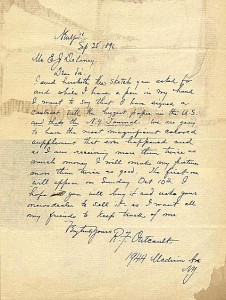 Sep 25 1896
Mr. E. J. Delaney
Dear Sir:
I send herewith the sketch you asked for
and while I have a pen in my hand
I want to say that I have signed a
contract with the largest paper in the U.S.
and that's the N.Y. Journal. We are going
to have the most magnificent colored
supplement that ever happened and
as I am receiving more than twice as
much money I will make my pictures
more than twice as good. The first one
will appear on Sunday Oct 10th. I
hope you will buy it and make your
newsdealer to sell it as I want all
my friends to keep track of me.
R. F. Outcault
1944 Madison Ave
N.Y.